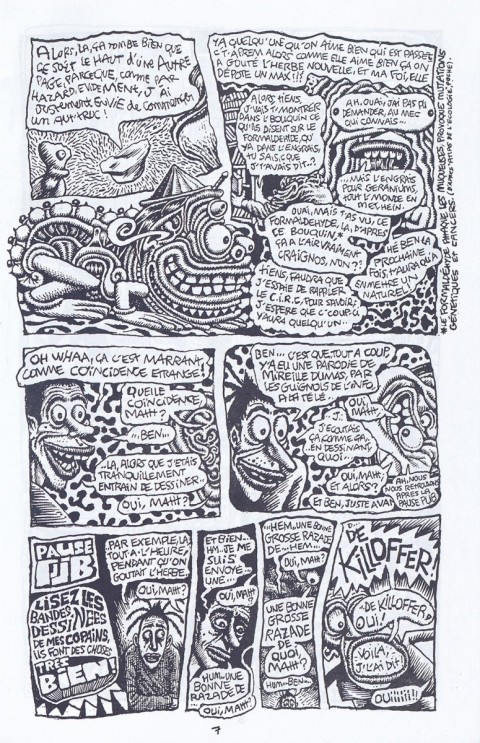 ALORS, LÀ, ÇA TOMBE BIEN QUE
CE SOIT LE HAUT D'UNE AUTRE
PAGE, PARCEQUE, COMME PAR
HAZARD, EVIDEMENT, J'AI
JUSTEMENT ENVIE DE COMMENCER
UN AUT'TRUC !
YA QUELQU'UNE QU'ON AIME BIEN QUI EST PASSÉE
ALORS COMME ELLE AIME BIEN ÇA ON
A GOUTÉ L'HERBE NOUVELLE, ET MA FOI, ELLE
DÉPOTE UN MAX !!!
ALORS, TIENS,
J'VAIS T'MONTRER
DANS L'BOUQUIN CE
QU'ILS DISENT SUR LE
FORMALDEHYDE, QU'
YA DANS L'ENGRAIS,
TU SAIS, C'QUE
J'T'AVAIS DIT..?
AH, OUAI, J'AI PAS PU
DEMANDER, AU MEC
QUI CONNAIS...
...MAIS L'ENGRAIS
POUR GERANIUMS,
TOUT L'MONDE EN
MET, HEIN.
OUAI, MAIS T'AS VU, CE
FORMALDEHYDE, LÀ, D'APRÈS
CE BOUQUIN
ÇA A L'AIR VRAIMENT
CRAIGNOS, NON ?!
HÉ BEN LA
PROCHAINE
FOIS, YAURA QU'À
EN METTRE UN
NATUREL...
TIENS, FAUDRA QUE
J'ESSAIE DE RAPPELER
LE C.I.R.C. POUR SAVOIR,
J'ESPERE QUE C'COUP-CI
YAURA QUELQU'UN...
*LE FORMALDEHYDE ATTAQUE LES MUQUEUSES, PROVOQUE MUTATIONS
GÉNÉTIQUES ET CANCERS.
OH WHAA, ÇA C'EST MARRANT,
COMME COÏNCIDENCE ETRANGE !
QUELLE
COÏNCIDENCE,
MAHT ?
...BEN...
...LÀ, ALORS QUE J'ETAIS
TRANQUILLEMENT
ENTRAIN DE DESSINER...
OUI, MAHT ?
BEN... C'EST QUE, TOUT A COUP,
YA EU UNE PARODIE DE
MIREILLE DUMAS, PAR
LES GUIGNOLS DE L'INFO,
A LA TÉLÉ...
OUI,
MAHT
J'ECOUTAIS
ÇA COMME ÇA...
EN DESSINANT,
QUOI...
OUI, MAHT,
ET ALORS ?
ET BEN, JUSTE AVA
AH, NOUS
NOUS RETROUVONS
APRES LA
PAUSE PUB
PAUSE
PUB
LISEZ LES
BANDES
DESSINÉES
DE MES COPAINS,
ILS FONT DES CHOSES
TRÈS
BIEN !
...PAR EXEMPLE, LÀ,
TOUT-A-L'HEURE,
PENDANT QU'ON
GOUTAIT L'HERBE...
OUI, MAHT ?
ET BIEN...
HM... JE ME
SUIS
ENVOYÉ...
UNE...
OUI, MAHT
HUM... UNE
BONNE
RAZADE DE...
OUI, MAHT ?
...HEM... UNE BONNE
GROSSE RAZADE
DE... HEM...
OUI, MAHT ?
UNE BONNE
GROSSE
RAZADE
DE
QUOI,
MAHT ?
HUM... BEN...
D...
...DE
KILLOFFER !
DE KILLOFFER,
OUI,
VOILÀ,
J'L'AI DIT !
OUIIIIII !!
7